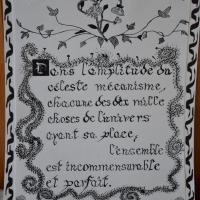 Dans l'amplitude du
céleste mécanisme,
chacune des dix mille
choses de l'univers
ayant sa place,
l'ensemble
est incommensurable
et parfait.